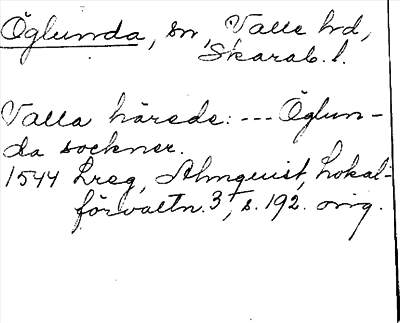 Öglunda, sn, Valle hd,
Skarab. l.
Valla härede: --- Öglun-
da sockner.
1544 Lreg, Almquist, Lokal-
förvaltn. 3, s. 192. orig.